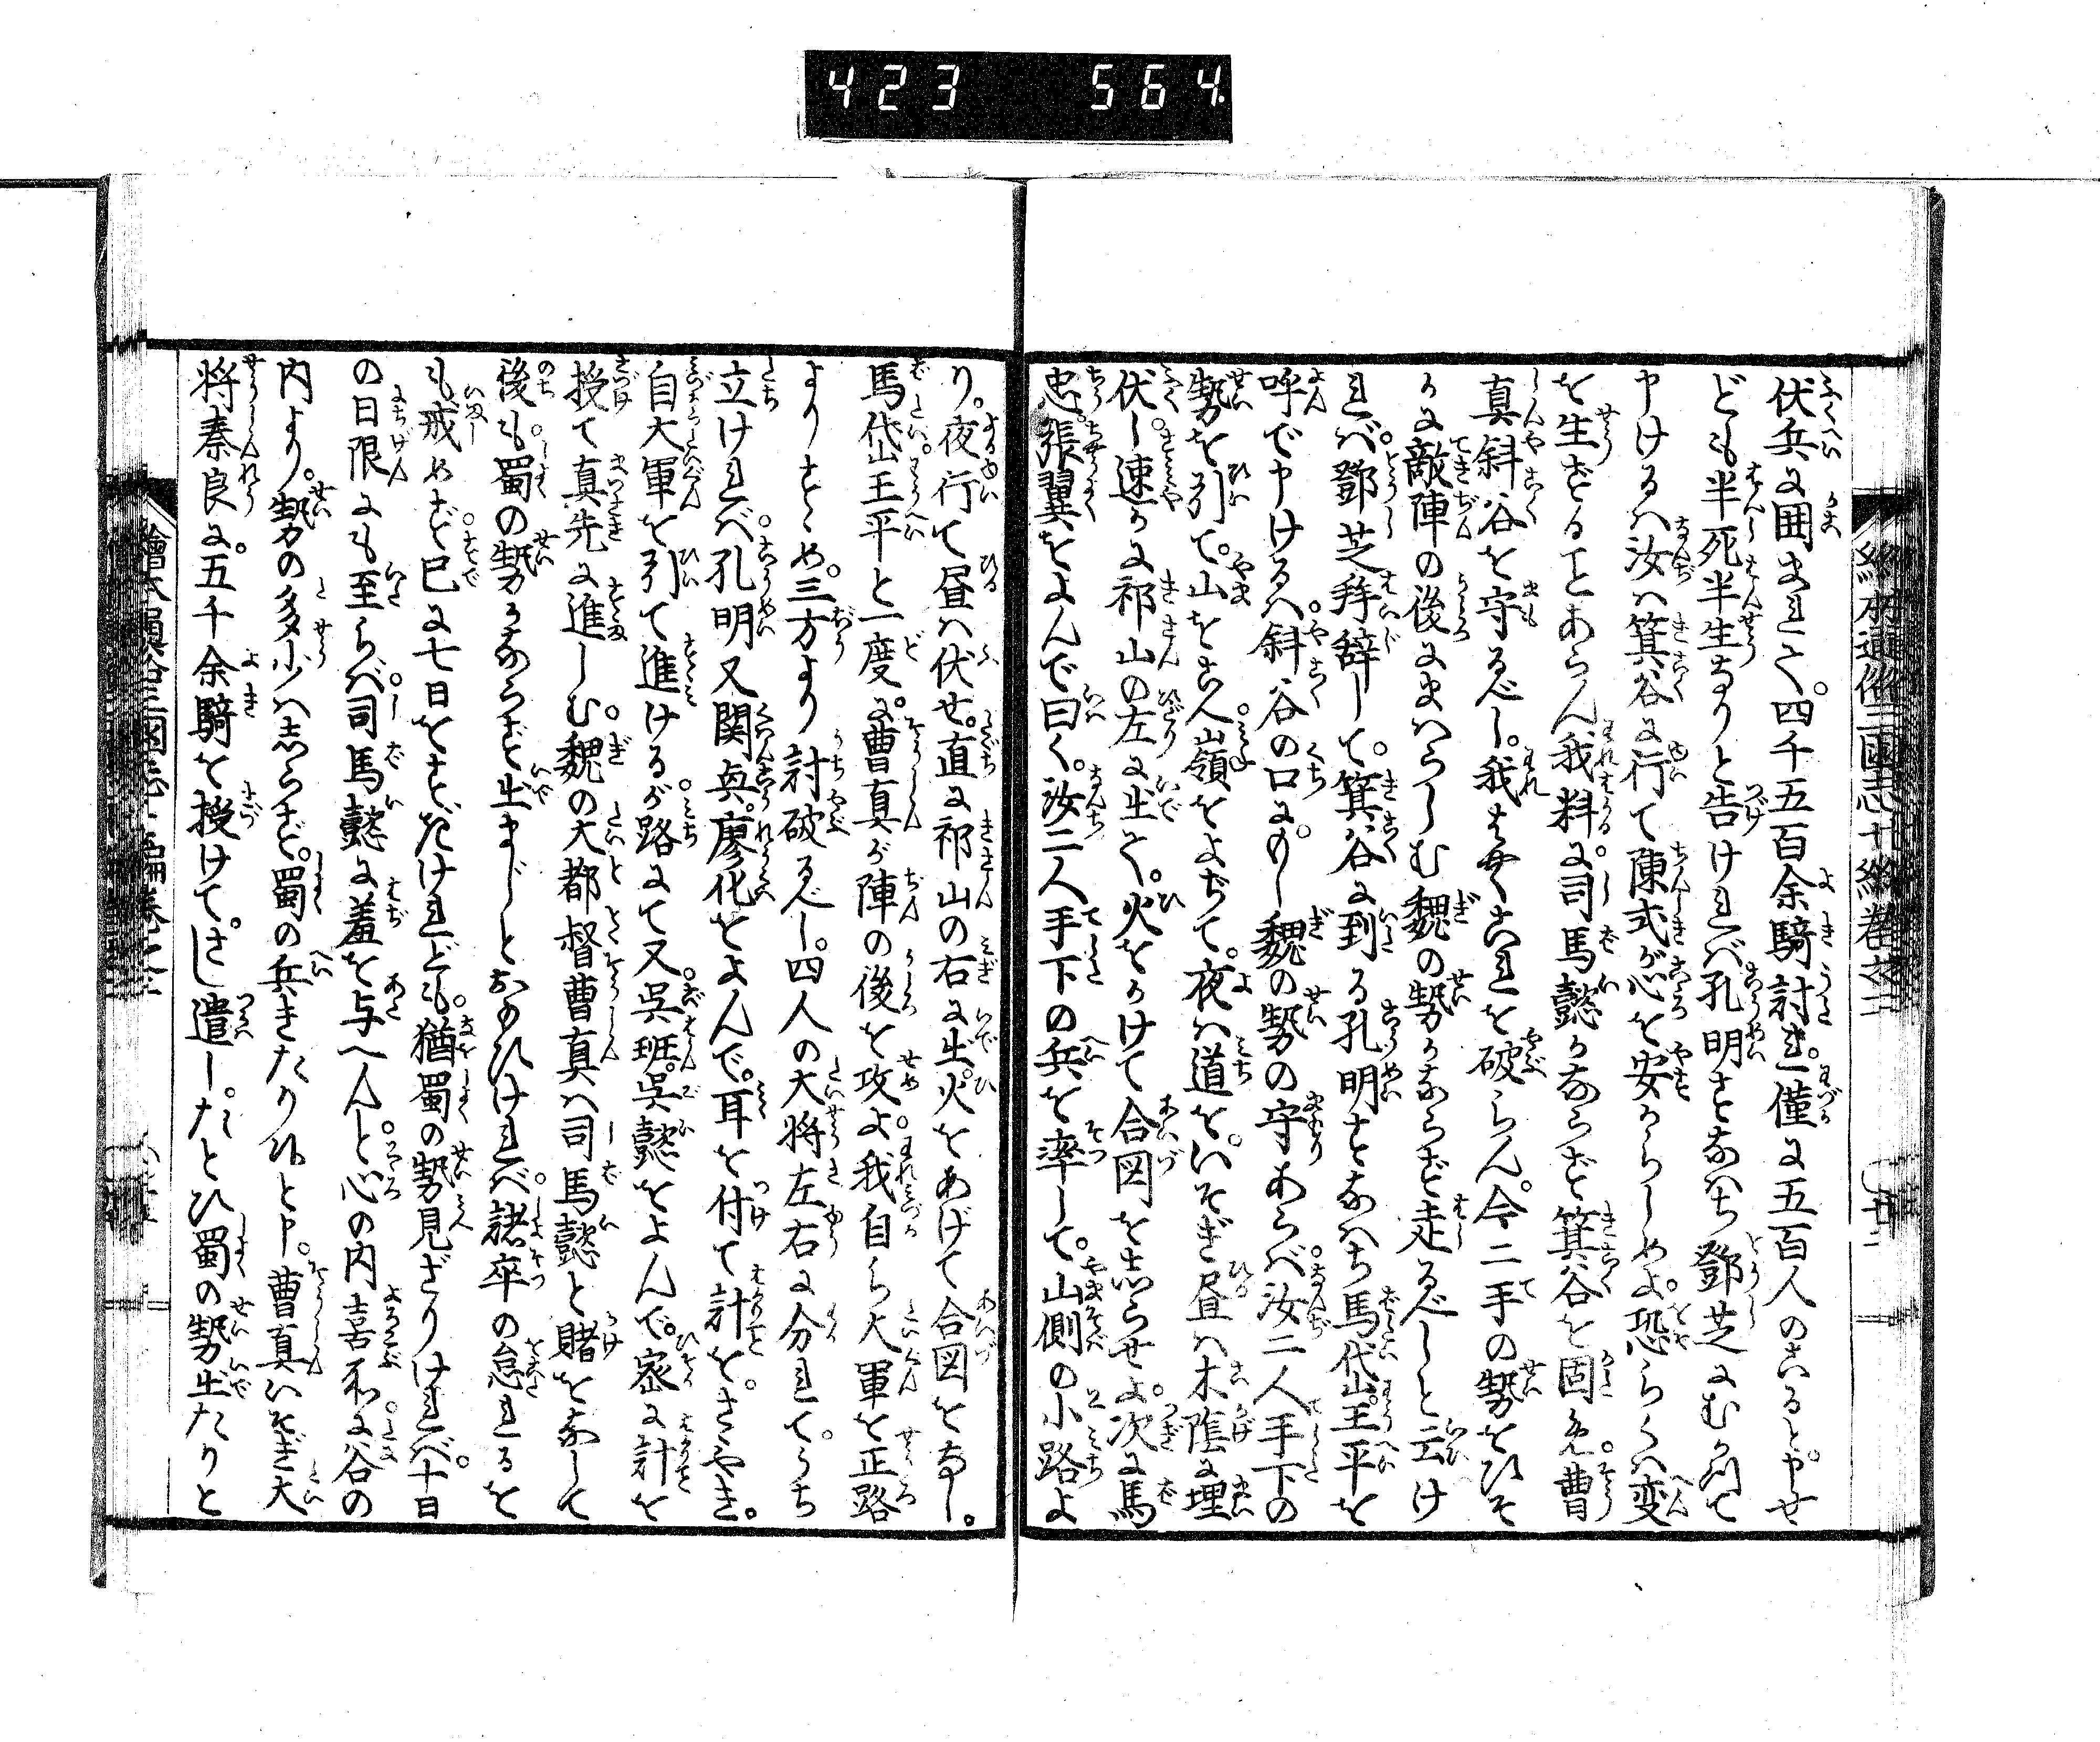 423 564
伏兵に囲まれて。四千五百余騎討れ。僅に五百人のこると申せ
ども半死半生なりと告けれバ孔明すなハち鄧芝にむかつて
申けるハ汝ハ箕谷に行て陳式が心を安からしめよ。恐らくハ変
を生ずることあらん我料に。司馬懿かならず箕谷を固め。曹
真斜谷を守るべし。我はやくこれを破らん。今二手の勢をひそ
かに敵陣の後にまハらしむ魏の勢かならず走るべしと云け
れバ。鄧芝拝辞して。箕谷に到る孔明すなハち馬岱。王平を
呼で申けるハ。斜谷の口に。もし魏の勢の守あらバ。汝二人手下の
勢を引て。山をこへ嶺をよぢて。夜ハ道を。いそぎ昼ハ木陰に埋
伏し。速かに祁山の左に出て。火をかけて合図を志らせよ。次に馬
忠。張翼をよんで曰く。汝二人手下の兵を率して。山側の小路よ
り。夜行て昼ハ伏せ。直に祁山の右に出。火をあげて合図をなし。
馬岱王平と一度に。曹真が陣の後を攻よ。我自ら大軍を正路
よりすゝめ。三方より討破るべし。四人の大将左右に分れて。うち
立けれバ。孔明又関興。廖化をよんで。耳を付て計を。さゝやき。
自大軍を引て進けるが。路にて又。呉班。呉懿をよんで。密に計を
授て真先に進しむ。魏の大都督曹真ハ司馬懿と賭をなして
後も。蜀の勢かならず出まじとおもひけれバ。諸卒の怠れるを
も戒めず。已に七日をすぎたけれども。猶蜀の勢見ざりけれバ。十日
の日限にも至らバ。司馬懿に羞を与へんと。心の内喜ぶ。不に谷の
内より。勢の多少ハ志らず。蜀の兵きたり候と申。曹真いそぎ大
将秦良に。五千余騎を授けて。さし遣し。たとひ蜀の勢出たりと